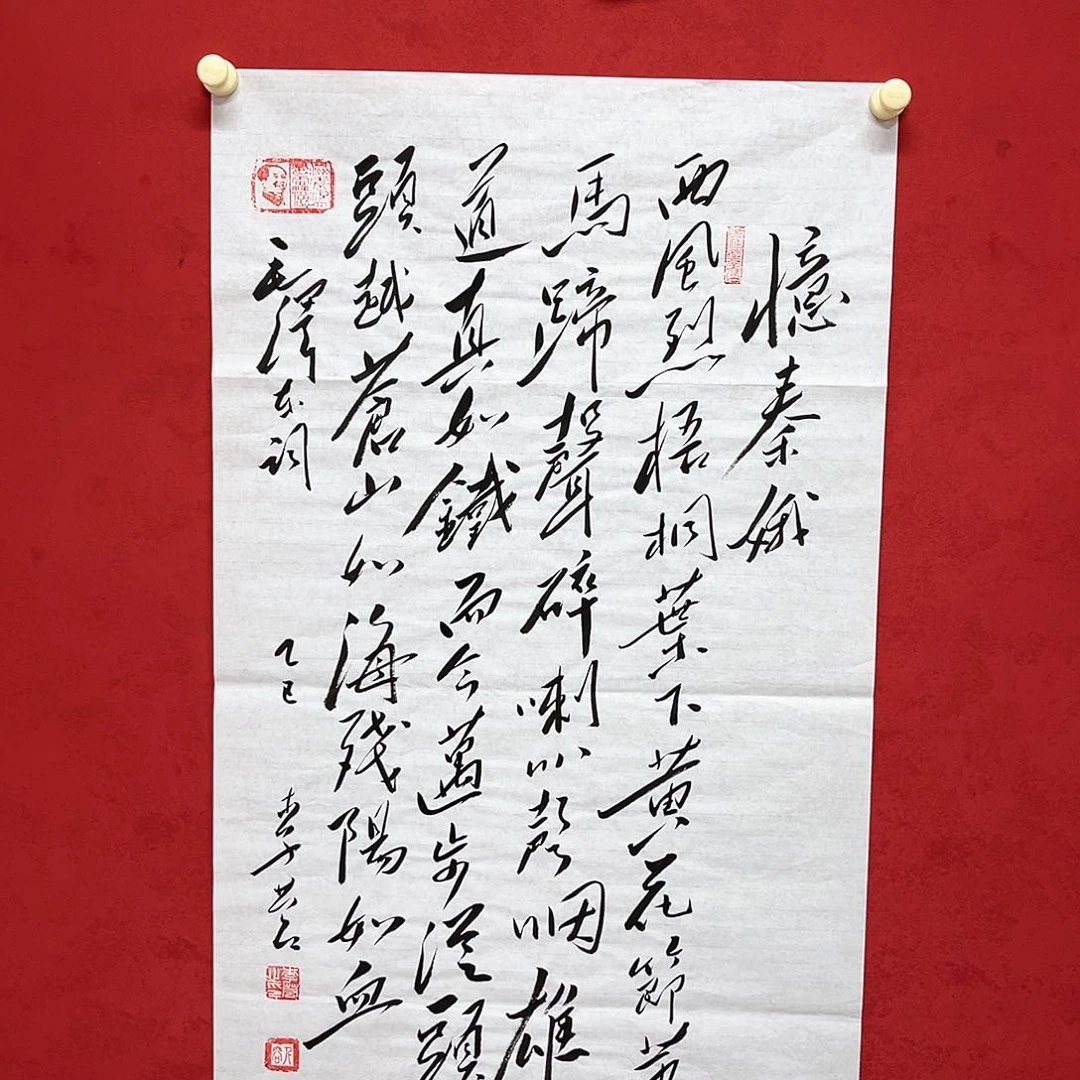 憶秦娥
西風烈梧桐葉下黄花節
馬蹄聲碎喇叭聲咽雄
道真如鐵而今邁步從頭
頭越蒼山如海殘陽如血
毛澤东詞
乙巳
李